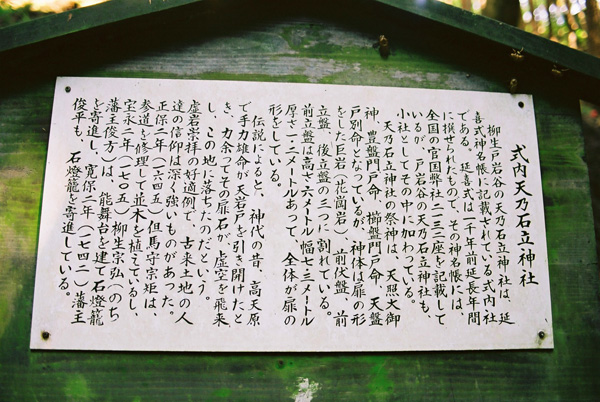 式内天乃石立神社
柳生戸岩谷の天乃石立神社は、延
喜式神名帳に記載されている式内社
である。延喜式は一千年前延長年間
に撰せられたもので、その神名帳には、
全国の官国弊社三一三二座を記載して
いるが、戸岩谷の天乃石立神社も、
小社としてその中に加わっている。
天乃石立神社の祭神は、天照大御
神、豊盤門戸命、櫛盤門戸命、天盤
戸別命となっているが、神体は扉の形
をした巨岩(花崗岩)、前伏盤、前
立盤、後立盤の三つに割れている。
前立盤は高さ六メートル幅七・三メートル
厚さ一・二メートルあって、全体が扉の
形をしている。
伝説によると、神代の昔、高天原
で手力雄命が天岩戸を引き開けたと
き、力余ってその扉石が、虚空を飛来
し、この地に落ちたのだという。
虚岩崇拝の好適例で、古来土地の人
達の信仰は深く強いものがあった。
正保二年(一六四五)但馬守宗矩は、
参道を修理して並木を植えているし、
宝永二年(一七〇五)柳生宗弘(のち
藩主俊方)は、能舞台を建て石燈籠
を寄進し、寛保二年(一七四二)藩主
俊平も、石燈籠を寄進している。